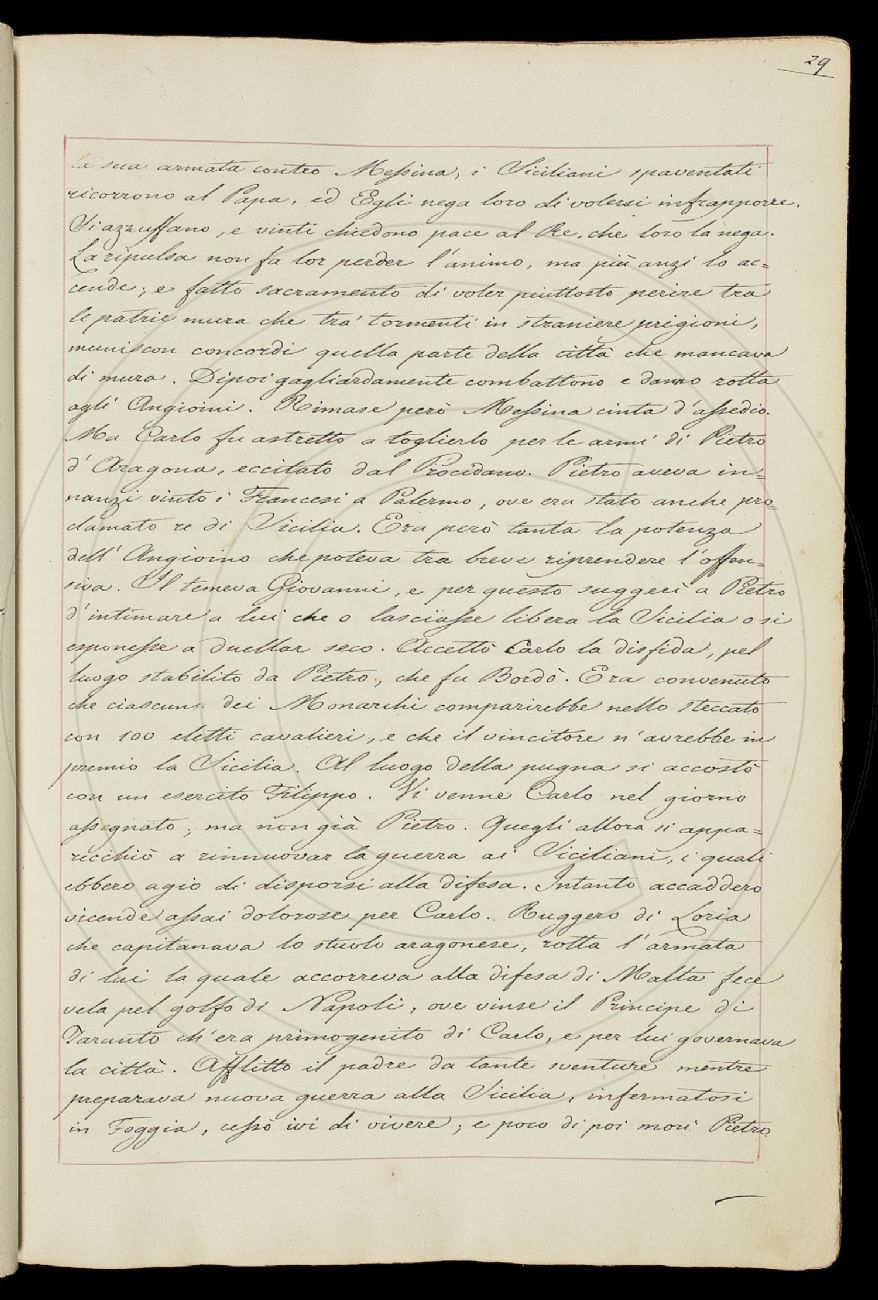 29
la sua armata contro Messina; i Siciliani spaventati
ricorrono al Papa, ed Egli nega loro di volersi infrapporre.
Si azzuffano, e vinti chiedono pace al Re, che loro la nega.
La ripulsa non fa lor perder l'animo, ma più anzi lo ac=
cende; e fatto sacramento di voler piuttosto perire tra
le patrie mura che tra' tormenti in straniere prigioni,
muniscon concordi quella parte della città che mancava
di mura. Dipoi gagliardamente combattono e danno rotta
agli Angioini. Rimase però Messina cinta d'assedio.
Ma Carlo fu astretto a toglierlo per le armi di Pietro
d'Aragona, eccitato dal Procidano. Pietro aveva in=
nanzi vinto i Francesi a Palermo, ove era stato anche pro=
clamato re di Sicilia. Era però tanta la potenza
dell'Angioino che poteva tra breve riprendere l'offen=
siva. Il temeva Giovanni, e per questo suggerì a Pietro
d'intimare a lui che o lasciasse libera la Sicilia o si
esponesse a duellar seco. Accettò Carlo la disfida, pel
luogo stabilito da Pietro, che fu Bordò. Era convenuto
che ciascuno dei Monarchi comparirebbe nello steccato
con 100 eletti cavalieri, e che il vincitore n'avrebbe in
premio la Sicilia. Al luogo della pugna si accostò
con un esercito Filippo. Vi venne Carlo nel giorno
assegnato; ma non già Pietro. Quegli allora si appa=
ricchiò a rinnuovar la guerra ai Siciliani, i quali
ebbero agio di disporsi alla difesa. Intanto accaddero
vicende assai dolorose per Carlo. Ruggero di Loria
che capitanava lo stuolo aragonese, rotta l'armata
di lui la quale accorreva alla difesa di Malta fece
vela pel golfo di Napoli, ove vinse il Principe di
Taranto ch'era primogenito di Carlo, e per lui governava
la città. Afflitto il padre da tante sventure mentre
preparava nuova guerra alla Sicilia, infermatosi
in Foggia, cessò ivi di vivere; e poco di poi morì Pietro